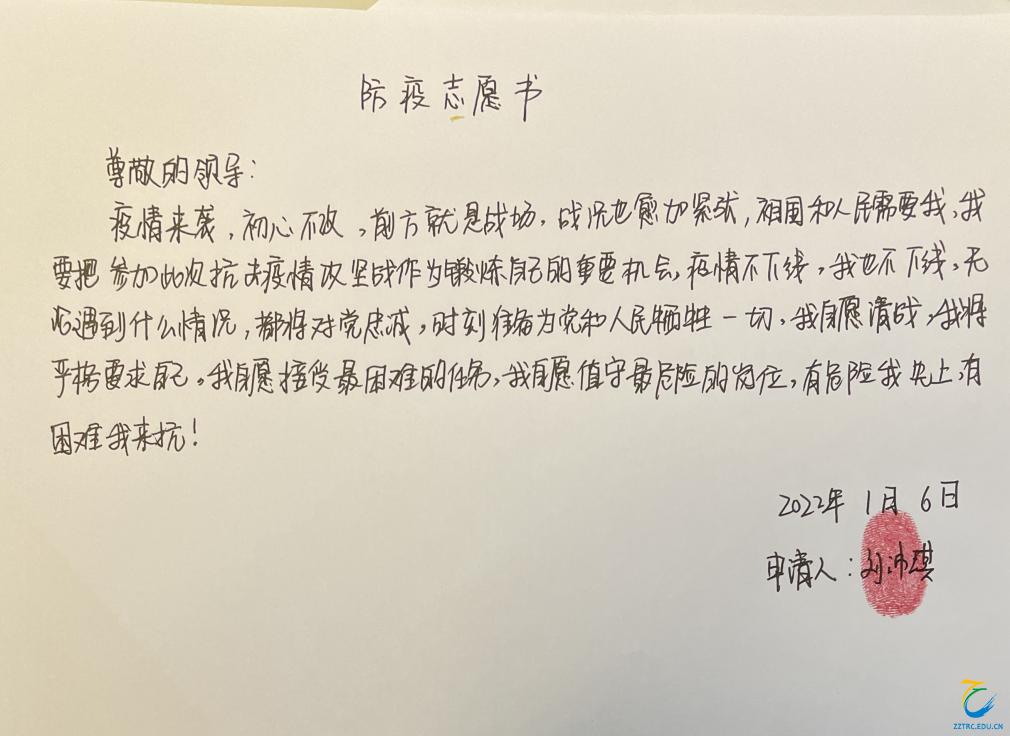 防疫志愿书
尊敬的领导：
疫情来袭，初心不改，前方就是战场，战况也愈加紧张，祖国和人民需要我，我
要把参加此次抗击疫情攻坚战作为锻炼自己的重要机会，疫情不下线，我也不下线，无
论遇到什么情况，都将对党忠诚，时刻准备为党和人民牺牲一切，我自愿请战，我将
严格要求自己。我自愿接受最困难的任务，我自愿值守最危险的岗位，有危险我先上，有
困难我来抗！
2022年 1月 6日
申请人：刘沛琪
ZZTRC.EDU.CN